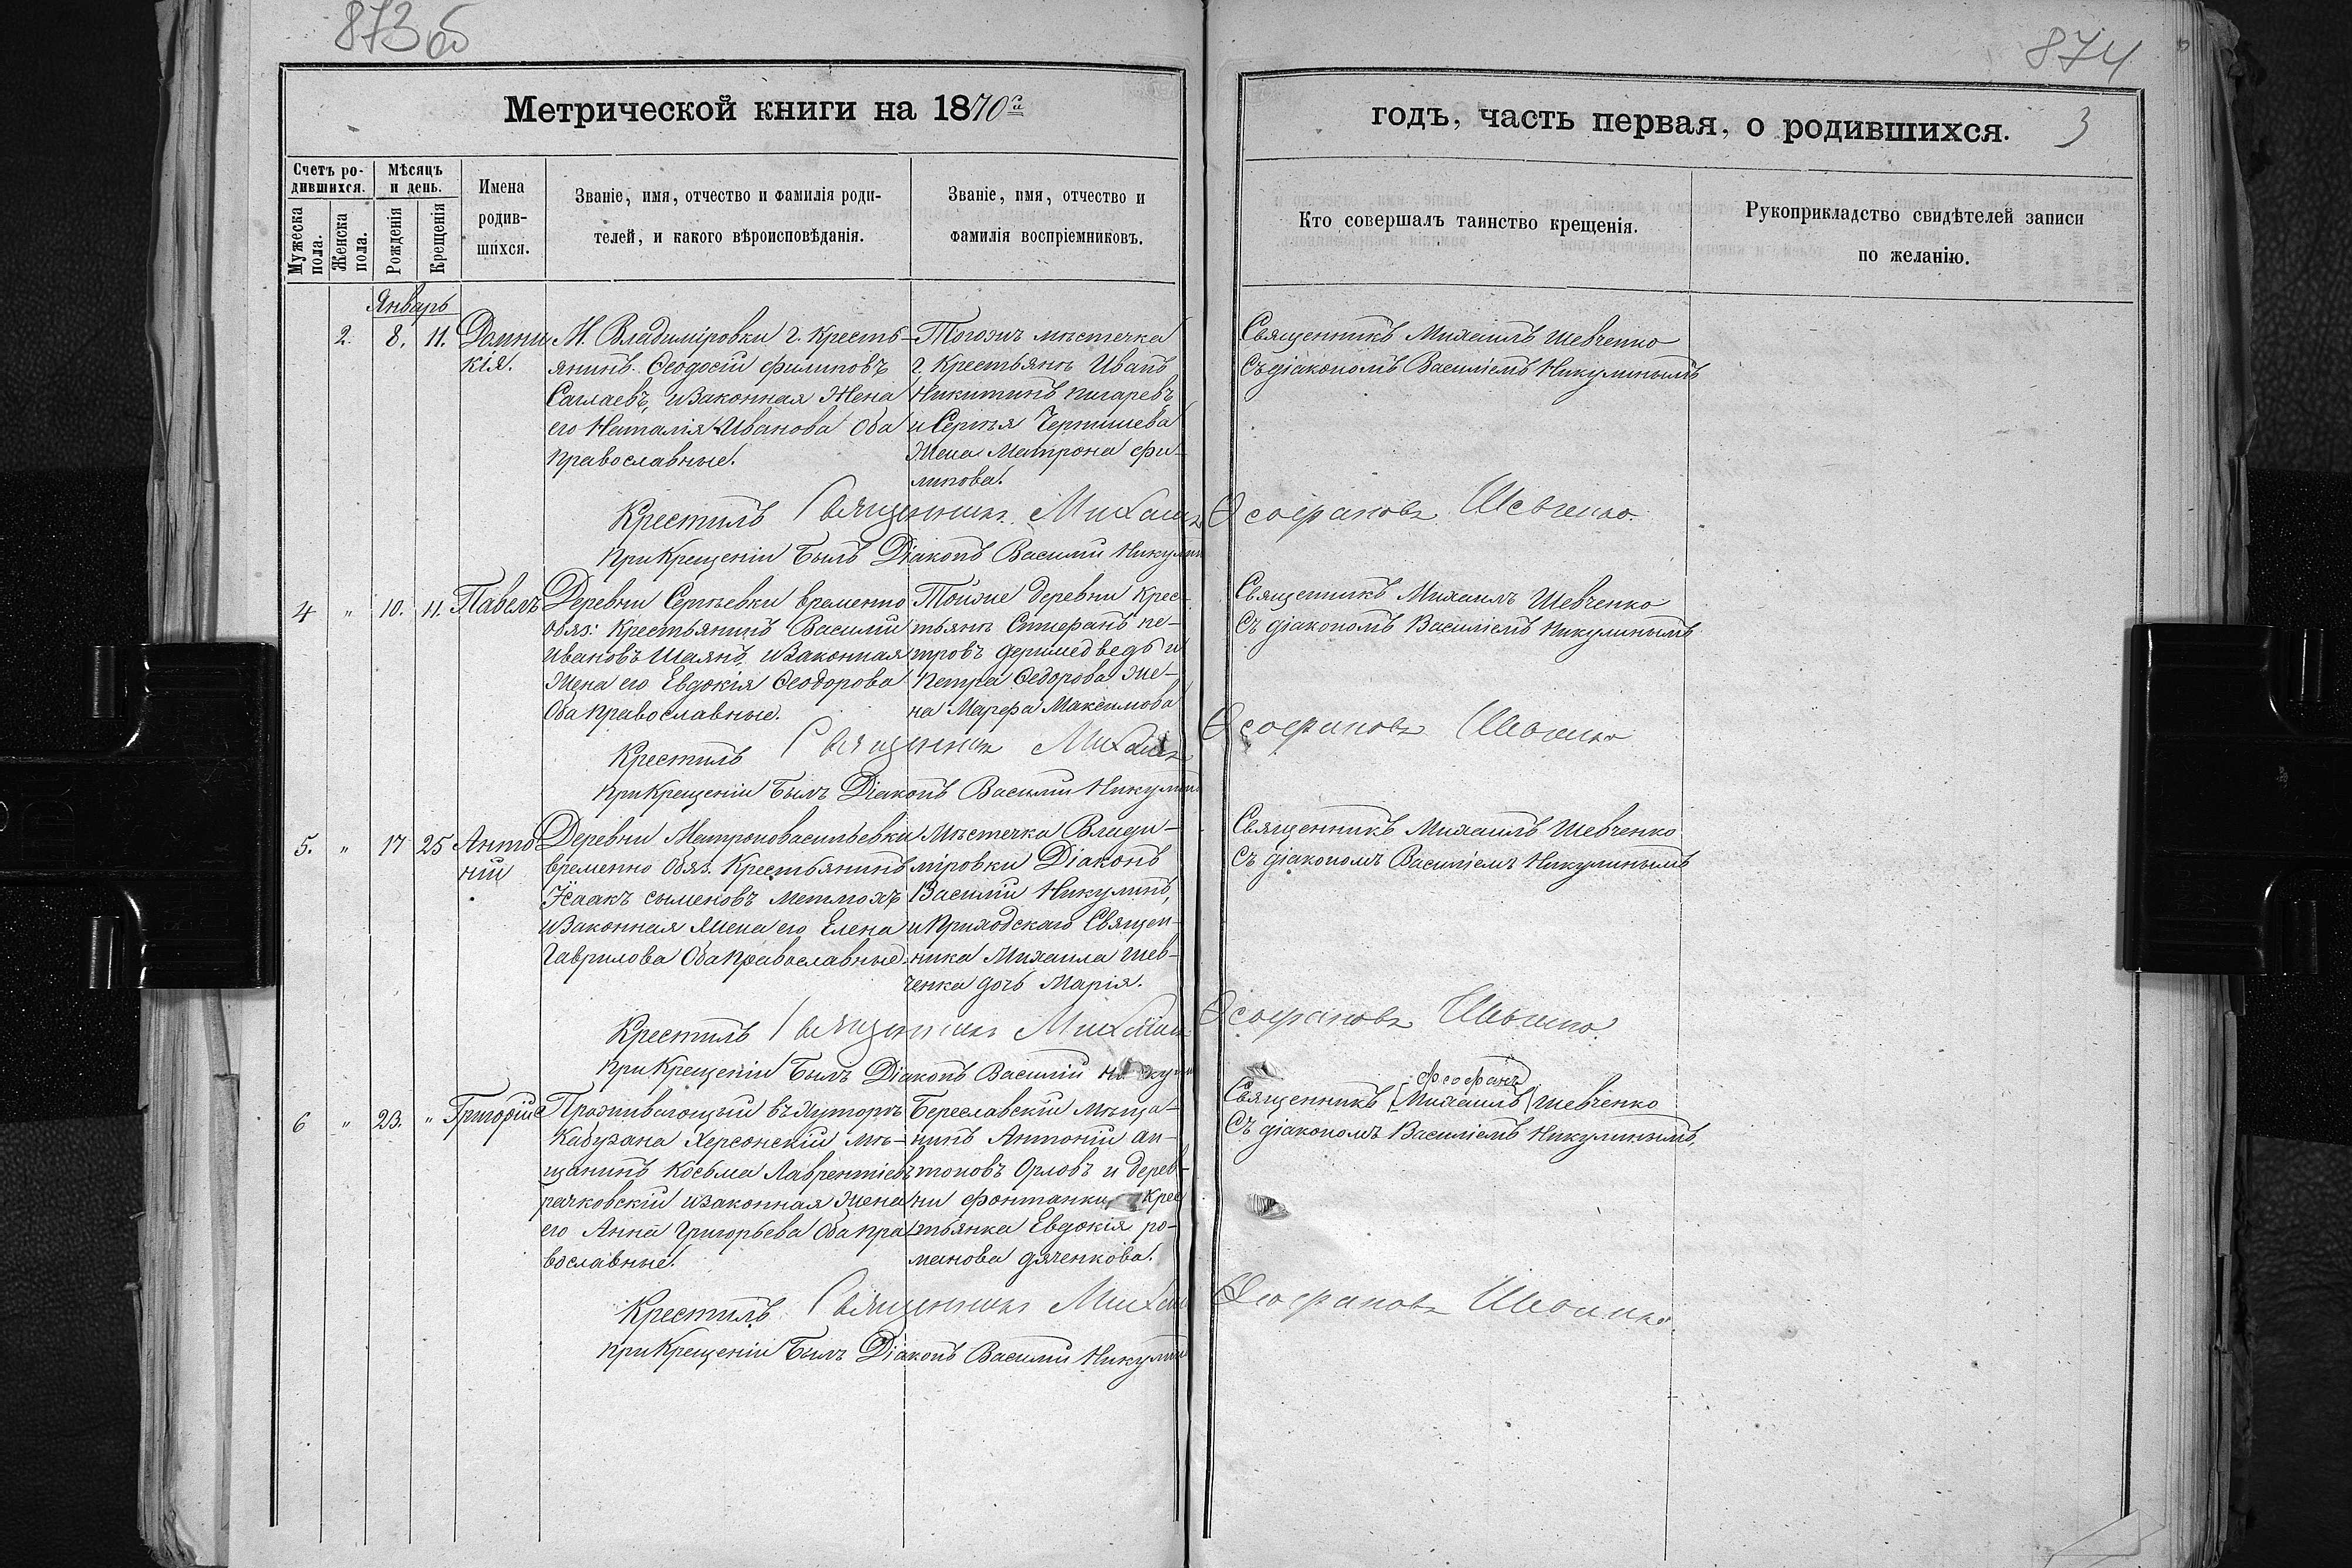 873 об
874
Метрической книги на 1870й
годъ, часть первая, о родившихся.
3
Счетъ ро-
дившихся.
Мѣсяцъ
и день.
Мужеска
пола.
Женска
пола.
Рожденія
Крещенія
Имена
родив-
шихся.
Званіе, имя, отчество и фамилія роди-
телей, и какого вѣроисповѣданія.
Званіе, имя, отчество и
фамилія воспріемниковъ.
Кто совершалъ таинство крещенія.
Рукоприкладство свидѣтелей записи
по желанію.
Январь
2. 8. 11.
Домни
кія.
М. Владиміровки г. Кресть-
янинъ Ѳеодосій филиповъ
Саглаевъ, изаконная Жена
его Наталія Иванова Оба
православные.
Тогожъ мѣстечка
г. Крестьянъ Иванъ
Никитинъ писаревъ
и Сергѣя Чертишева
Жена Матрона фи-
липова.
Священникъ Михаилъ Шевченко
Съ діакономъ Василіемъ Никулинымъ
Крестилъ Священникъ Михаилъ Ѳеофановъ Шевченко.
при Крещеніи Былъ Діаконъ Василій Никулинъ
4 " 10. 11. Павелъ
Деревни Сергѣевки временно
обяз: Крестьянинъ Василій
Ивановъ Шаянъ, изаконная
Жена его Евдокія Ѳеодорова
Оба православные.
Тойже деревни Крес-
тьянъ Стефанъ пе-
тровъ дермедведь и
Петра Ѳедорова Же-
на Марфа Максимова
Священникъ Михаилъ Шевченко
Съ діакономъ Василіемъ Никулинымъ
Крестилъ Священникъ Михаилъ Ѳеофановъ Шевченко
при Крещеніи Былъ Діаконъ Василій Никулинъ
5. " 17 25
Анто
ній
Деревни Матроновасильевки
временно Обяз. Крестьянинъ
Исаакъ сыменовъ метлохъ
изаконная Жена его Елена
Гаврилова Оба православные.
Мѣстечка Влади-
міровки Діаконъ
Василій Никулинъ,
и Приходскаго Священ-
ника Михаила Шев-
ченка дочь Марія.
Священникъ Михаилъ Шевченко
Съ діакономъ Василіемъ Никулинымъ
Крестилъ Священникъ Михаилъ Ѳеофановъ Шевченко
при Крещеніи Былъ Діаконъ Василій Никулинъ
6 " 23. " Григорій
Проживающый въ Хуторѣ
Кабузана Херсонскій мѣ-
щанинъ Косьма Лаврентіевъ
рачковскій изаконная Жена
его Анна Григорьева Оба пра-
вославные.
Береславскій мѣща-
нинъ Антоній ан-
тоновъ Орловъ и дерев-
ни фонтанки, Крес
тьянка Евдокія ро-
манова дяченкова.
Феофанъ
Священникъ (Михаилъ) Шевченко
Съ діакономъ Василіемъ Никулинымъ,
Крестилъ Священникъ Михаилъ Ѳеофановъ Шевченко.
при Крещеніи Былъ Діаконъ Василій Никулинъ